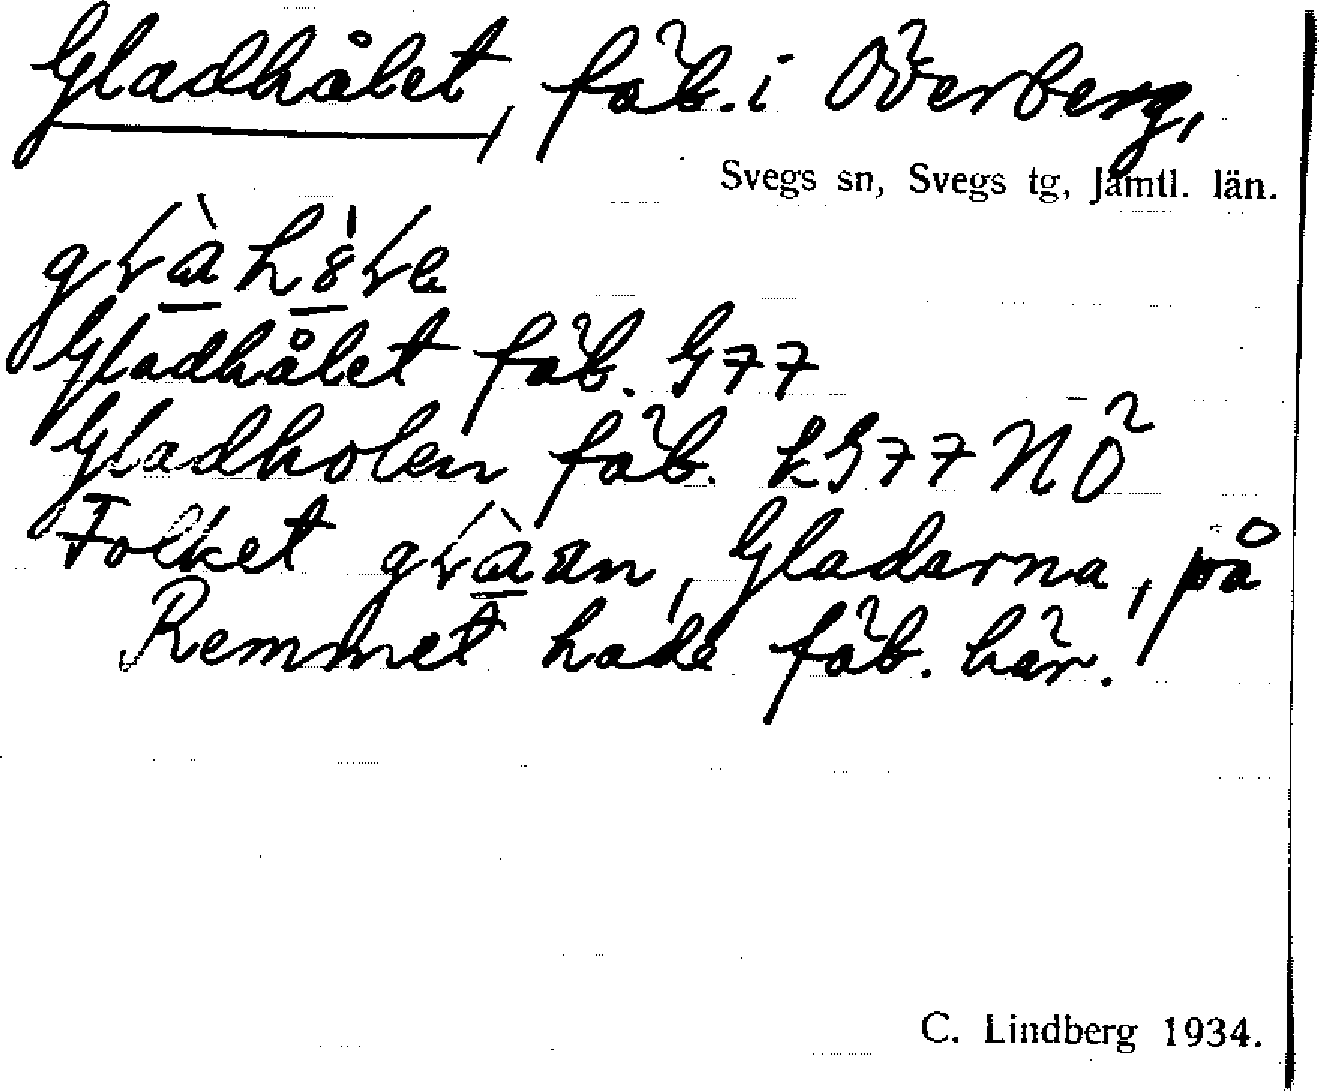 Gladhålet, fäb. i Överberg,
Svegs sn, Svegs tg, Jämtl. län.
Gladhålet fäb. G77
Gladholen fäb. kG77NÖ
Folket Gladarna, på
Remmet hade fäb. här.
C. Lindberg 1934.